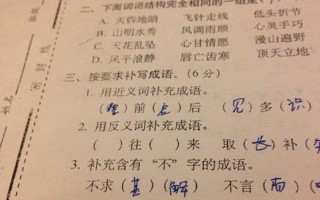 二. 下面词语结构完全相同的一组是(
A. 天昏地暗 飞针走线 低头折节
B. 山明水秀 风调雨顺 心灵手巧
C. 天花乱坠 心甘情愿 漫山遍野
D. 风平浪静 唇亡齿寒 顶天立地
三. 按要求补写成语。(6分)
1. 用近义词补充成语。
( )前( )后 (见)多(识)
2. 用反义词补充成语。
( )往( )来 取(长)补(
3. 补充含有“不”字的成语。
不求(甚)(解) 不言(而)(
密封线
姓名